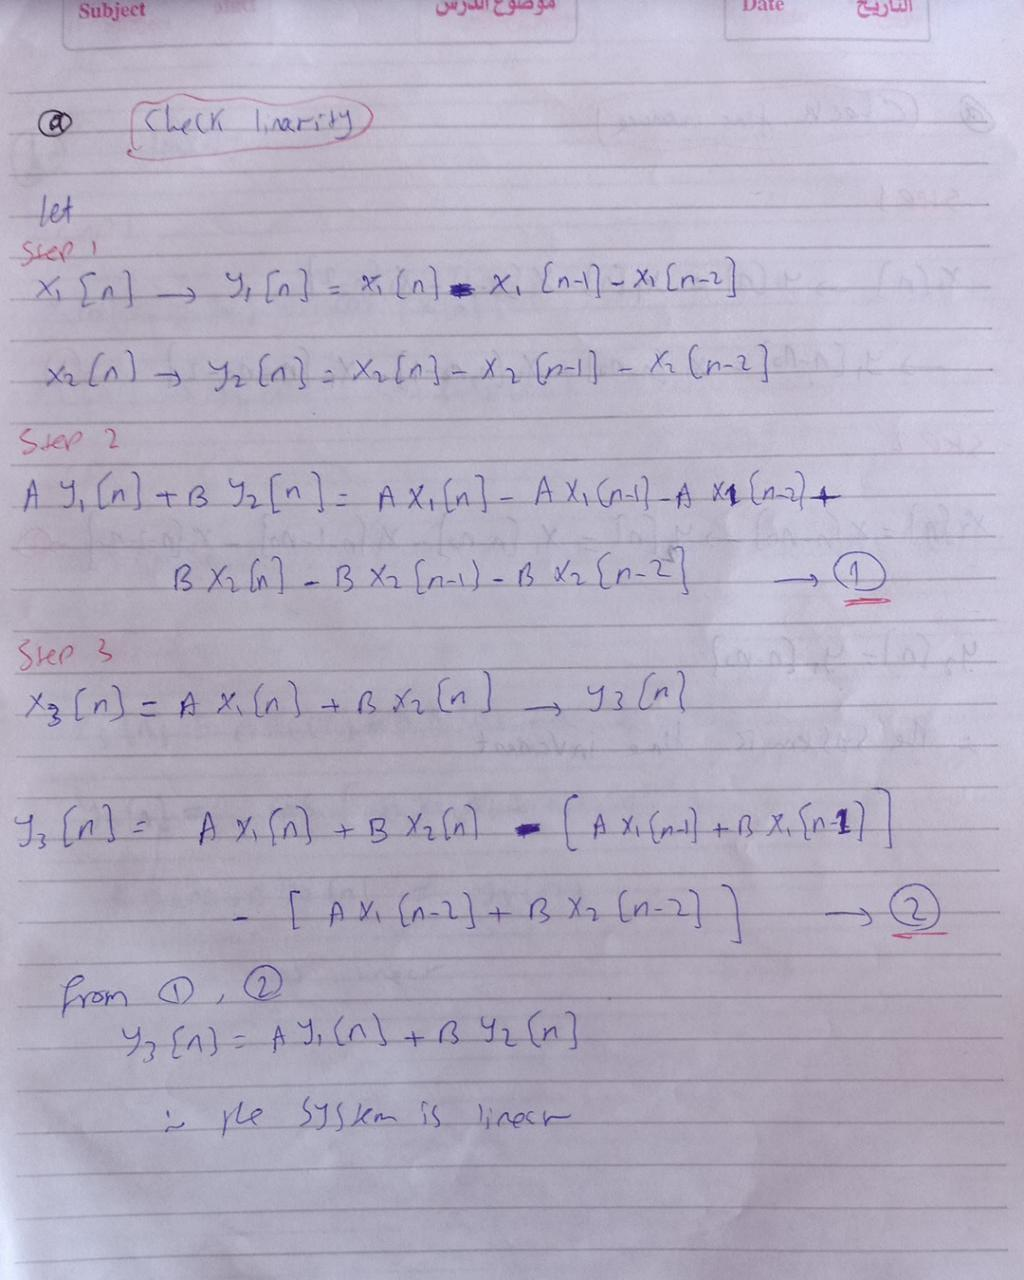 Subject
موضوع الدرس
Date
التاريخ
ⓐ Check linarity
let
Step 1
X₁[n] → y₁[n] = X₁[n] - X₁[n-1] - X₁[n-2]
X₂[n] → y₂[n] = X₂[n] - X₂[n-1] - X₂[n-2]
Step 2
A y₁[n] + B y₂[n] = A X₁[n] - A X₁[n-1] - A X1[n-2] +
B X₂[n] - B X₂[n-1] - B X₂[n-2] → ①
Step 3
X₃[n] = A X₁[n] + B X₂[n] → y₃[n]
y₃[n] = A X₁[n] + B X₂[n] - [A X₁[n-1] + B X₁[n-1]]
- [A X₁[n-2] + B X₂[n-2]] → ②
from ①, ②
y₃[n] = A y₁[n] + B y₂[n]
∴ the system is linear